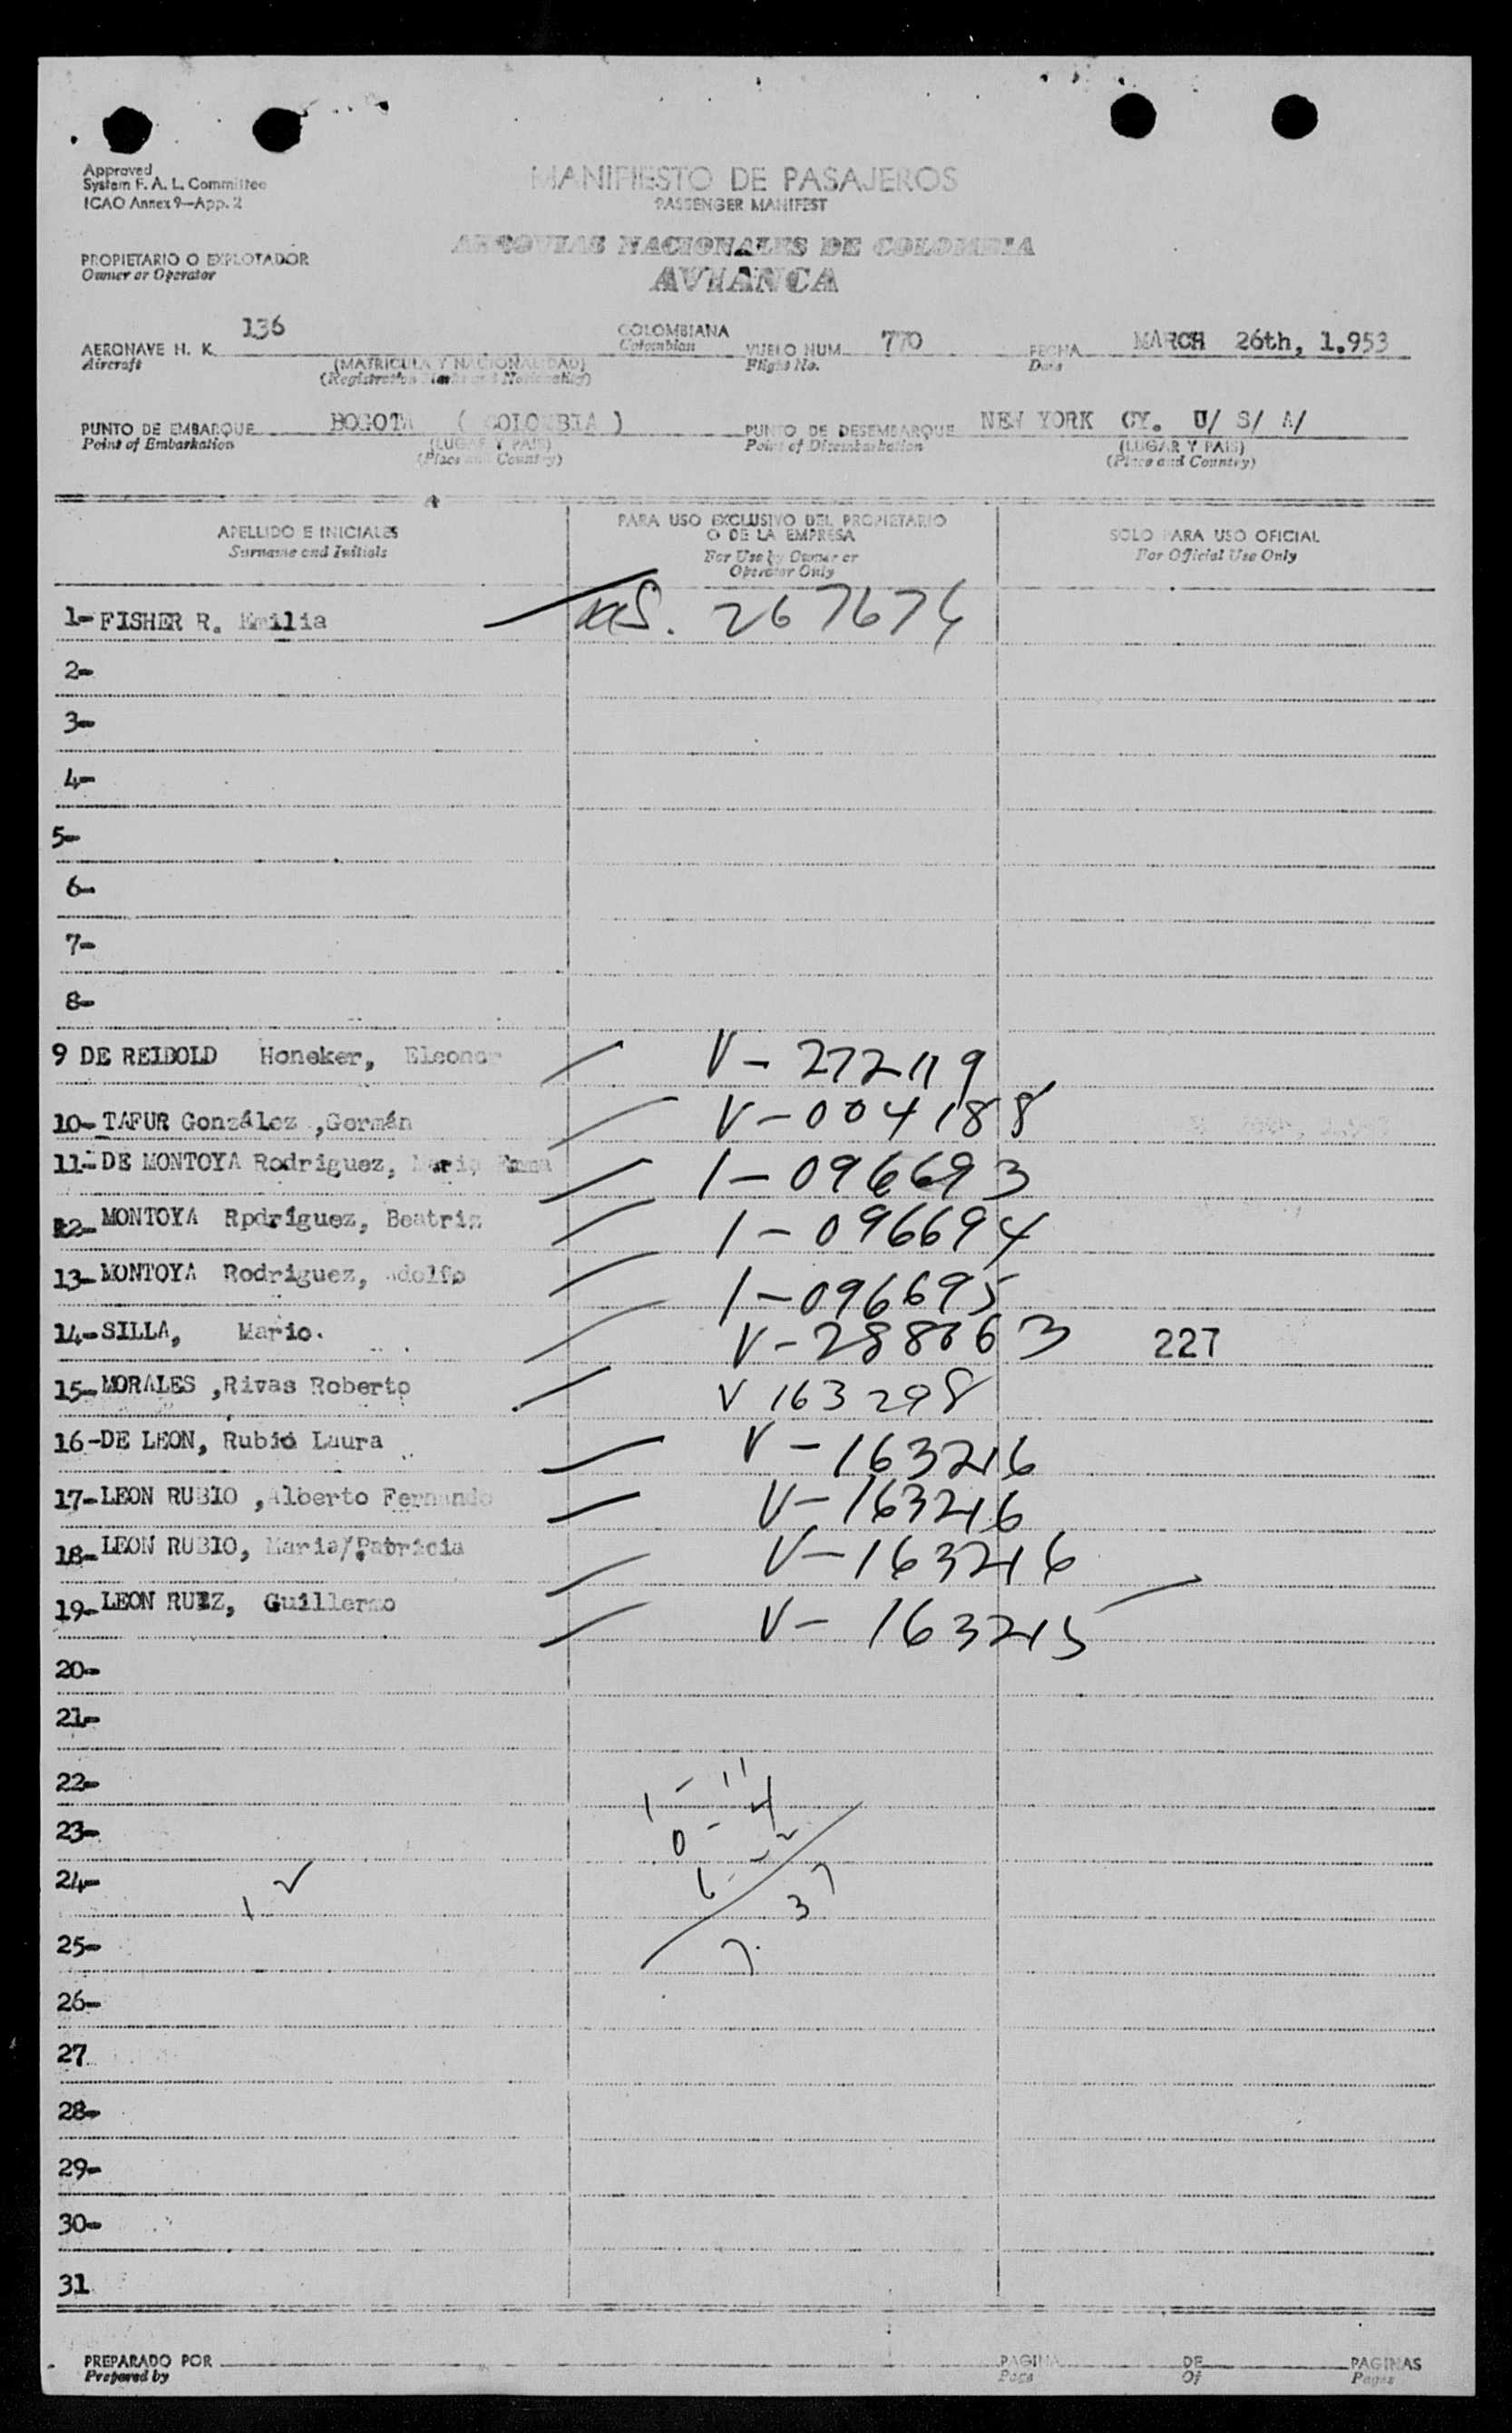 Approved
System F. A. L. Committee
ICAO Annex 9—App. 2
MANIFIESTO DE PASAJEROS
PASSENGER MANIFEST
AEROVIAS NACIONALES DE COLOMBIA
AVIANCA
PROPIETARIO O EXPLOTADOR
Owner or Operator
AERONAVE H. K. 136 COLOMBIANA VUELO NUM. 770 FECHA MARCH 26th, 1.953
Aircraft (MATRICULA Y NACIONALIDAD) Colombian Flight No. Date
(Registration Marks and Nationality)
PUNTO DE EMBARQUE BOGOTA ( COLOMBIA ) PUNTO DE DESEMBARQUE NEW YORK CY. U/ S/ A/
Point of Embarkation (LUGAR Y PAIS) Point of Disembarkation (LUGAR Y PAIS)
(Place and Country) (Place and Country)
APELLIDO E INICIALES PARA USO EXCLUSIVO DEL PROPIETARIO O DE LA EMPRESA SOLO PARA USO OFICIAL
Surname and Initials For Use by Owner or Operator Only For Official Use Only
1- FISHER R. Emilia 267674
2-
3-
4-
5-
6-
7-
8-
9 DE REIBOLD Honeker, Eleonor V-272119
10- TAFUR González ,Germán V-004188
11- DE MONTOYA Rodriguez, Maria Emma 1-096693
12- MONTOYA Rpdríguez, Beatriz 1-096694
13- MONTOYA Rodriguez, Adolfo 1-096695
14- SILLA, Mario. V-288063 227
15- MORALES ,Rivas Roberto V 163298
16-DE LEON, Rubio Laura V-163216
17- LEON RUBIO ,Alberto Fernando V-163216
18- LEON RUBIO, Maria/Patricia V-163216
19- LEON RUIZ, Guillermo V-163215
20-
21-
22- 1 - 11
23- 0 - 4
24-
1 3
25- 7.
26-
27
28-
29-
30-
31
PREPARADO POR PAGINA DE PAGINAS
Prepared by Page Of Pages